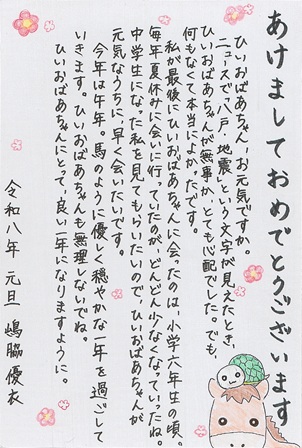 あけましておめでとうございます
ひいおばあちゃん、お元気ですか。
ニュースで「八戸、地震」という文字が見えたとき、
ひいおばあちゃんが無事か、とても心配でした。でも、
何もなくて本当によかったです。
私が最後にひいおばあちゃんに会ったのは、小学六年生の頃。
毎年夏休みに会いに行っていたのが、どんどん少なくなっていったね。
中学生になった私を見てもらいたいので、ひいおばあちゃんが
元気なうちに、早く会いたいです。
今年は午年。馬のように優しく穏やかな一年を過ごして
いきます。ひいおばあちゃんも無理しないでね。
ひいおばあちゃんにとって、良い一年になりますように。
令和八年 元旦 嶋脇優衣